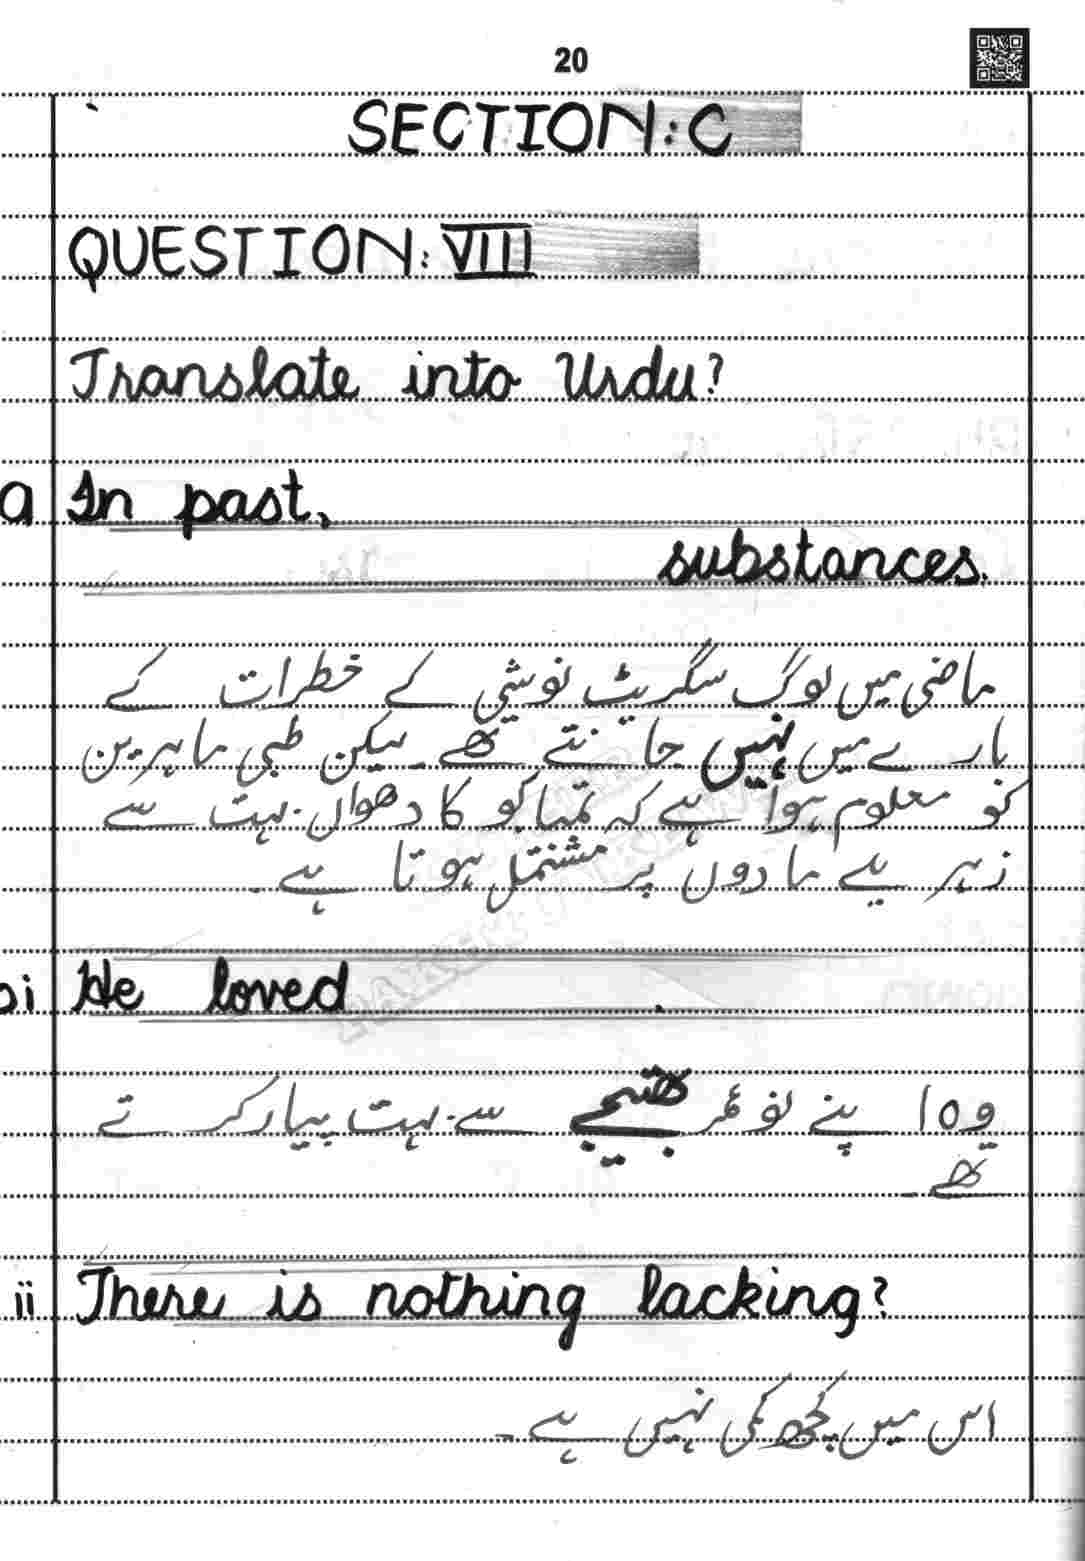 20
SECTION: C
QUESTION: VIII
Translate into Urdu?
a In past,
substances.
ماضی میں لوگ سگریٹ نوشی کے خطرات کے
بارے میں نہیں جانتے تھے۔ لیکن طبی ماہرین
کو معلوم ہوا ہے کہ تمباکو کا دھواں بہت سے
زہریلے مادوں پر مشتمل ہوتا ہے۔
bi He loved .
وہ اپنے نوعمر بھتیجے سے بہت پیار کرتے
تھے۔
ii There is nothing lacking?
اس میں کچھ کمی نہیں ہے۔